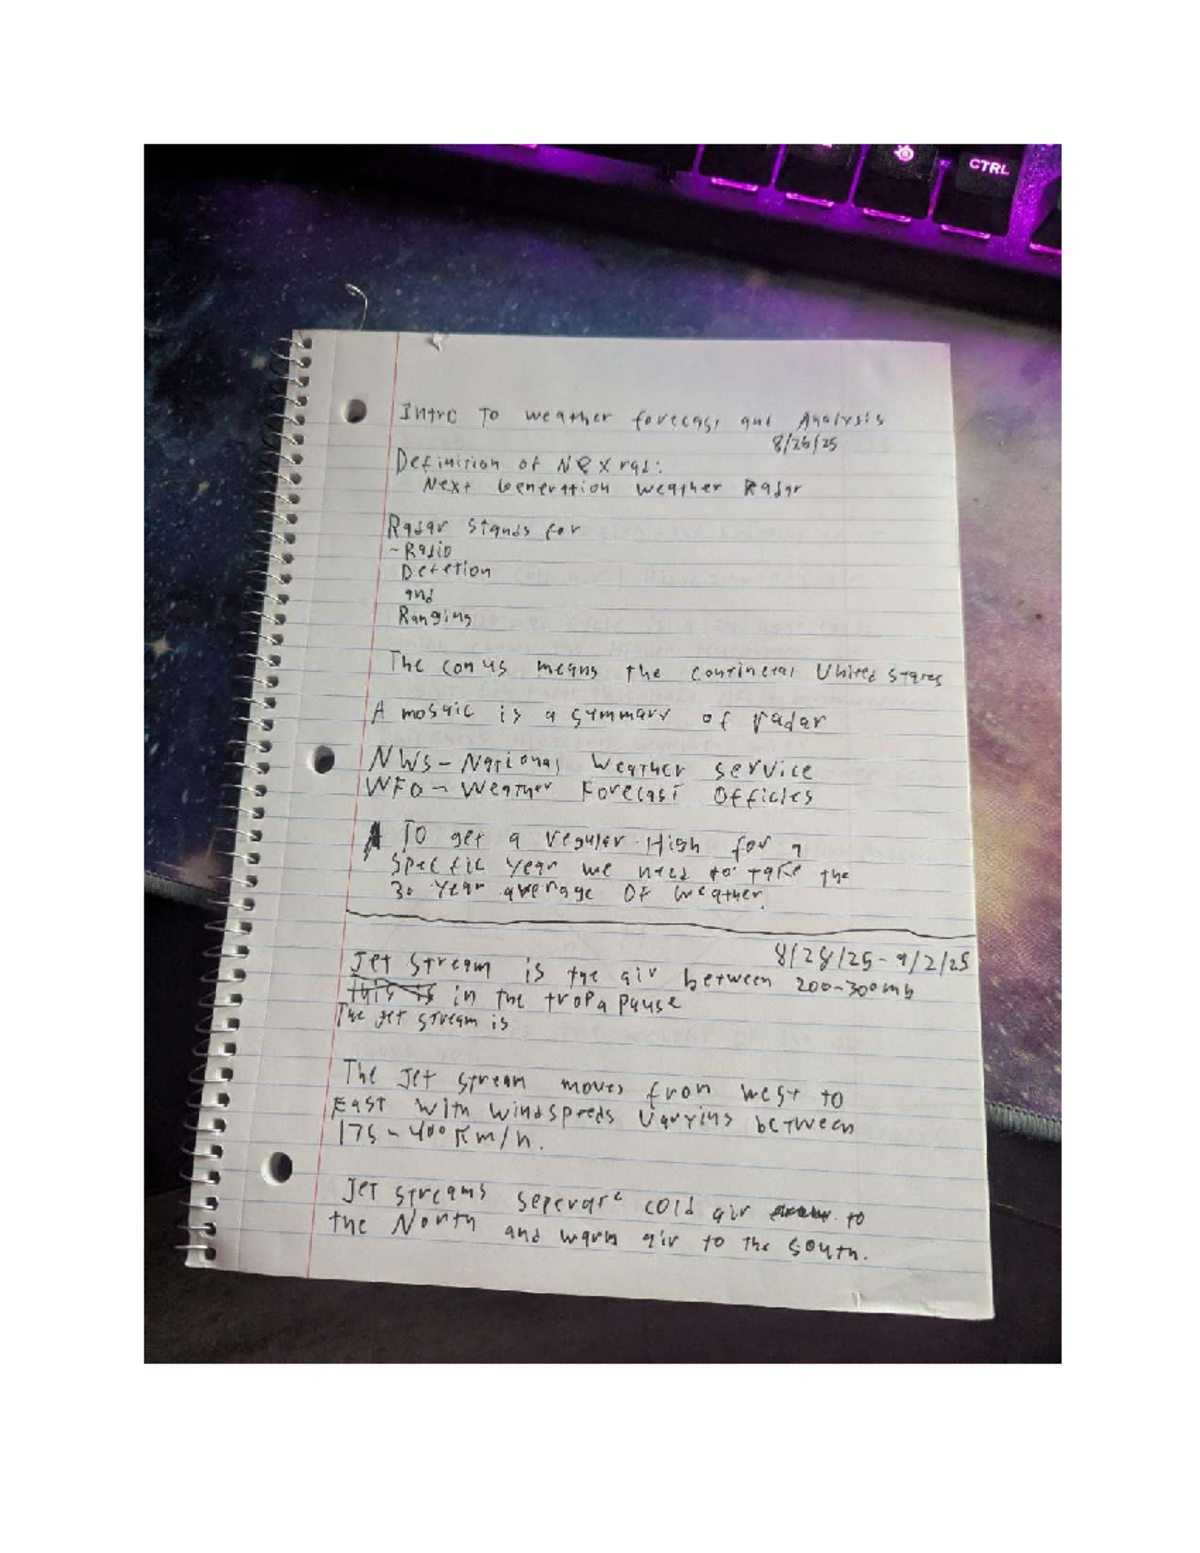 CTRL
Intro To weather forecast and Analysis
8/26/25
Definition of NEXrad:
Next Generation weather Radar
Radar Stands for
- Radio
Detetion
and
Ranging
The conus means the continetal United States
A mosaic is a summary of radar
NWS - National Weather service
WFO - Weather Forecast Officies
To get a regular High for a
Specfic year we need to take the
30 Year average Of weather.
8/28/25 - 9/2/25
Jet Stream is the air between 200-300mb
this is in the tropapause
The jet stream is
The Jet stream moves from west to
East with windspeeds Varying between
175 - 400 Km/h.
Jet streams seperate cold air to
the North and warm air to the south.